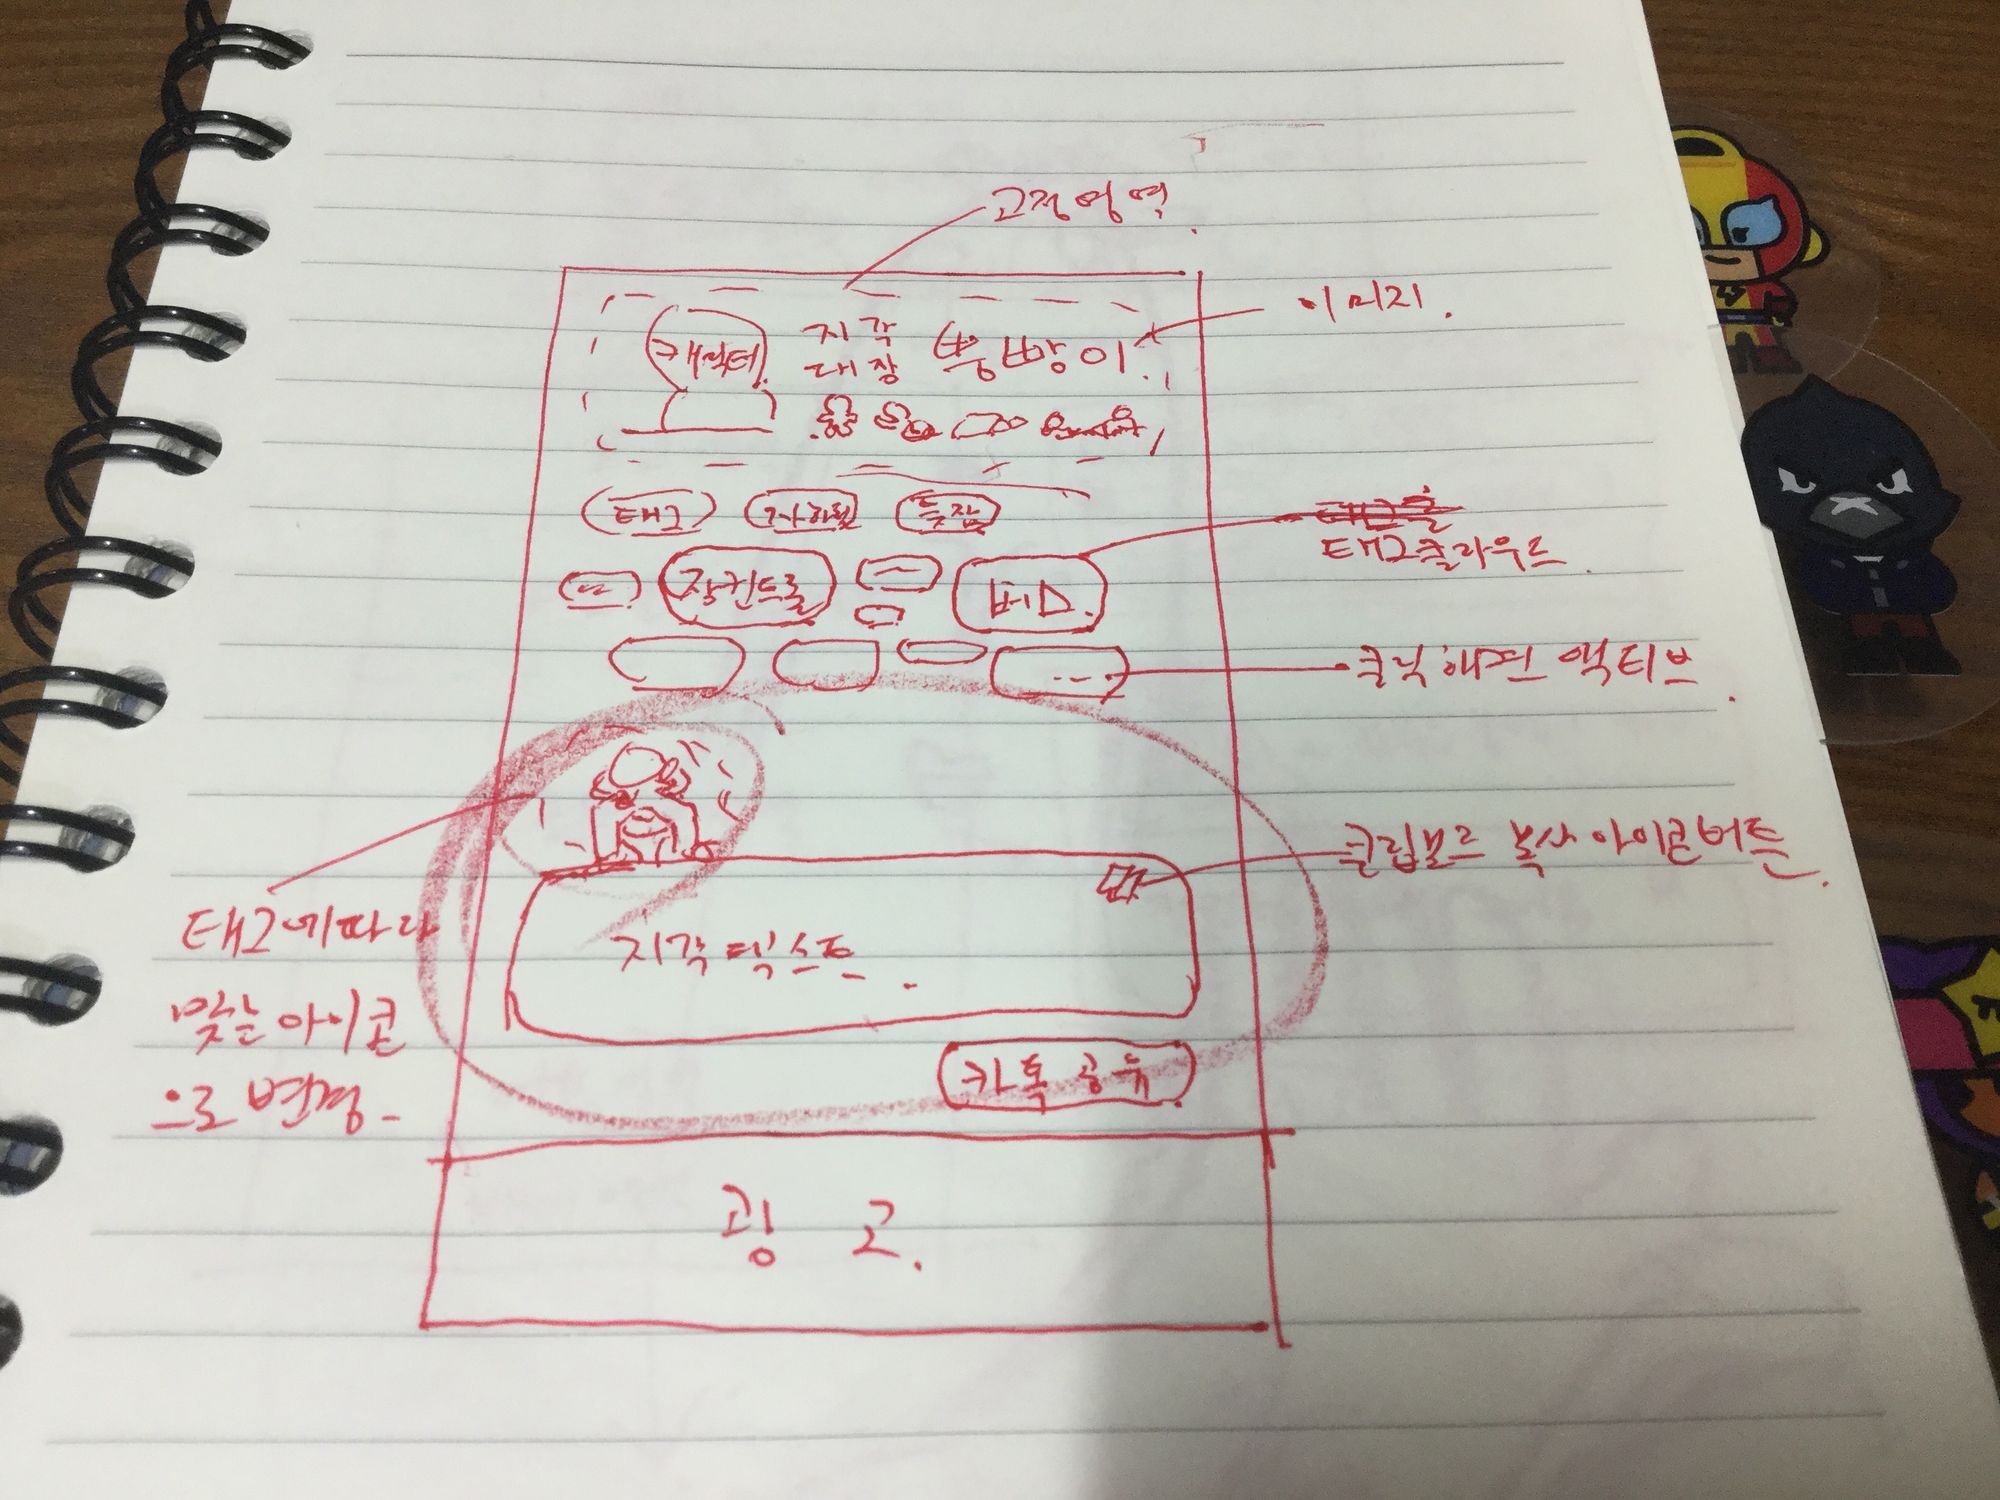 고정영역.
이미지.
캐릭터.
지각
대장
뿡뿡이.
태그
지하철
늦잠
태그클라우드.
장컨트롤
버스.
클릭하면 액티브.
클립보드 복사 아이콘버튼.
태그에따라
맞는 아이콘
으로 변경.
지각 텍스트.
카톡 공유.
광고.